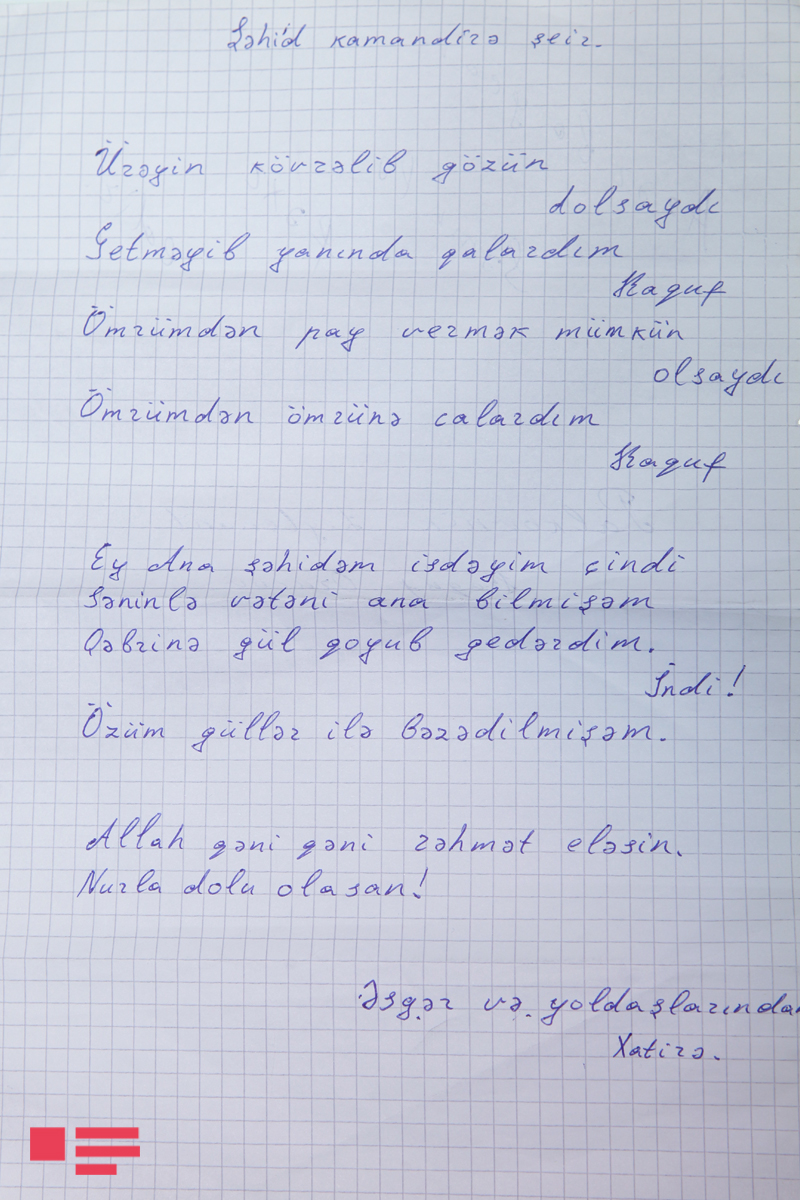 Şəhid kamandirə şeir.
Ürəyin kövrəlib gözün
dolsaydı
Getməyib yanında qalardım
Raquf
Ömrümdən pay vermək mümkün
olsaydı
Ömrümdən ömrünə calardım
Raquf
Ey Ana şəhidəm isdəyim çindi
Səninlə vətəni ana bilmişəm
Qəbrinə gül qoyub gedərdim.
İndi!
Özüm güllər ilə bəzədilmişəm.
Allah qəni qəni rəhmət eləsin.
Nurla dolu olasan!
Əsgər və yoldaşlarından
Xatirə.